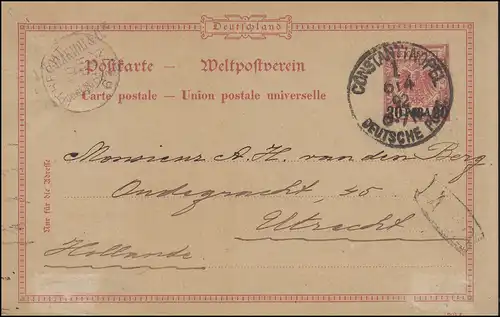 Deutschland
Postkarte — Weltpostverein
Carte postale — Union postale universelle
CONSTANTINOPEL
1
92
DEUTSCHE POST
20 PARA 20
Monsieur A. H. van den Berg.
Oudegracht 45
Utrecht
Hollande
Nur für die Adresse